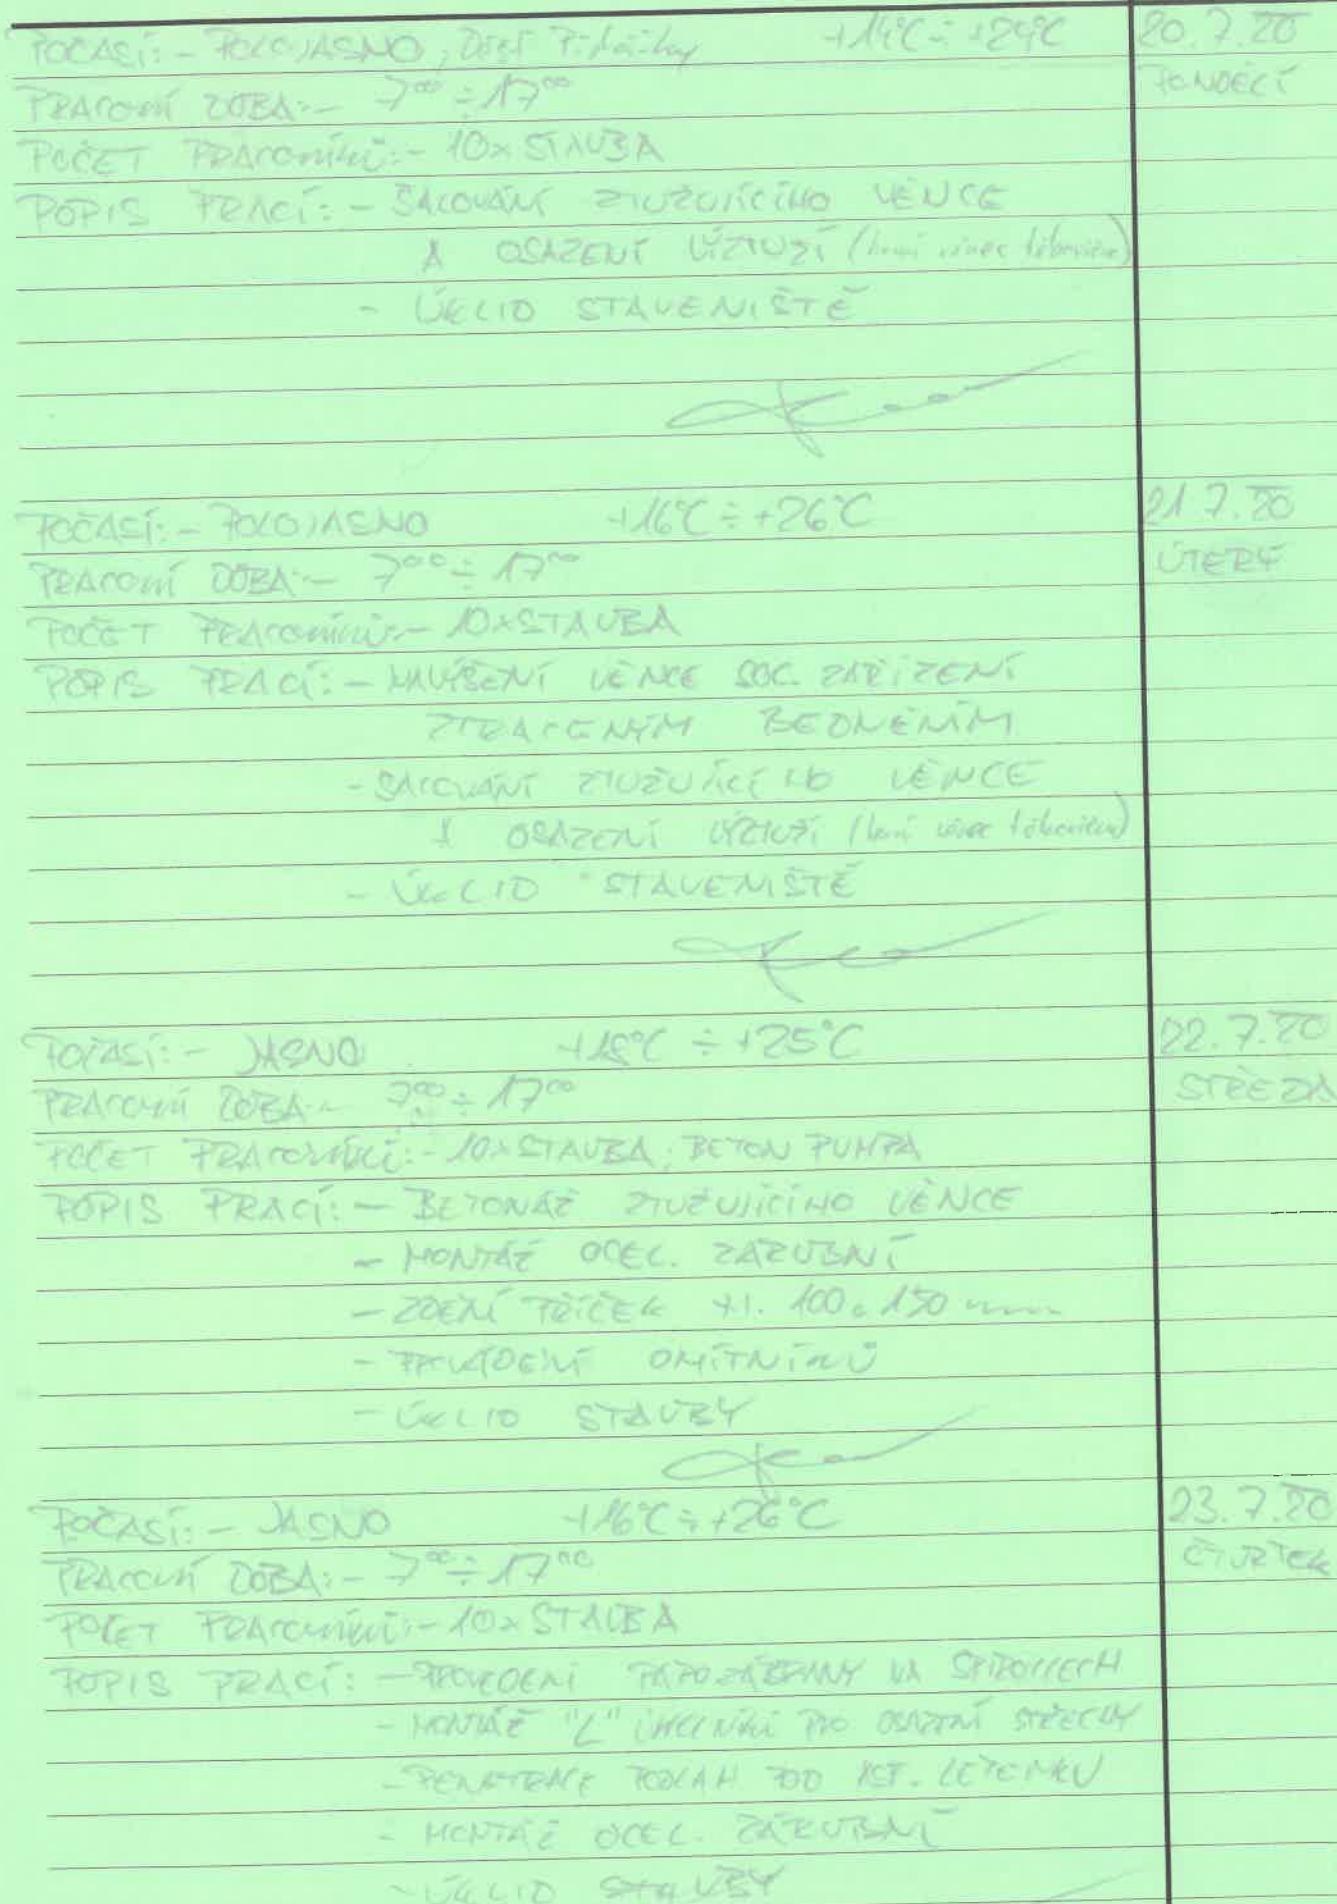 POČASÍ: - POLOJASNO, Déšť Přeháňky +14°C ÷ +24°C 20.7.20
PRACOVNÍ DOBA: - 7⁰⁰ ÷ 17⁰⁰ PONDĚLÍ
POČET PRACOVNÍKŮ: - 10x STAVBA
POPIS PRACÍ: - ŠALOVÁNÍ ZTUŽUJÍCÍHO VĚNCE
A OSAZENÍ VÝZTUŽÍ (horní věnec tělocvičny)
- ÚKLID STAVENIŠTĚ
POČASÍ: - POLOJASNO +16°C ÷ +26°C 21.7.20
PRACOVNÍ DOBA: - 7⁰⁰ ÷ 17⁰⁰ ÚTERÝ
POČET PRACOVNÍKŮ: - 10x STAVBA
POPIS PRACÍ: - NAVÝŠENÍ VĚNCE SOC. ZAŘÍZENÍ
ZTRACENÝM BEDNĚNÍM
- ŠALOVÁNÍ ZTUŽUJÍCÍHO VĚNCE
A OSAZENÍ VÝZTUŽÍ (horní věnec tělocvičny)
- ÚKLID STAVENIŠTĚ
POČASÍ: - JASNO ÷ +25°C 22.7.20
PRACOVNÍ DOBA: - 7⁰⁰ ÷ 17⁰⁰ STŘEDA
POČET PRACOVNÍKŮ: - 10x STAVBA, BETON PUMPA
POPIS PRACÍ: - BETONÁŽ ZTUŽUJÍCÍHO VĚNCE
- MONTÁŽ OCEL. ZÁRUBNÍ
- ZDĚNÍ PŘÍČEK tl. 100 a 150 mm
- PROVÁDĚNÍ OMÍTNÍKŮ
- ÚKLID STAVBY
POČASÍ: - JASNO +16°C ÷ +26°C 23.7.20
PRACOVNÍ DOBA: - 7⁰⁰ ÷ 17⁰⁰ ČTVRTEK
POČET PRACOVNÍKŮ: - 10x STAVBA
POPIS PRACÍ: - PROVEDENÍ PAROZÁBRANY NA
- MONTÁŽ "L" ÚHELNÍKŮ PRO OSAZENÍ STŘECHY
- PENETRACE PODLAH POD
- MONTÁŽ OCEL. ZÁRUBNÍ
- ÚKLID STAVBY